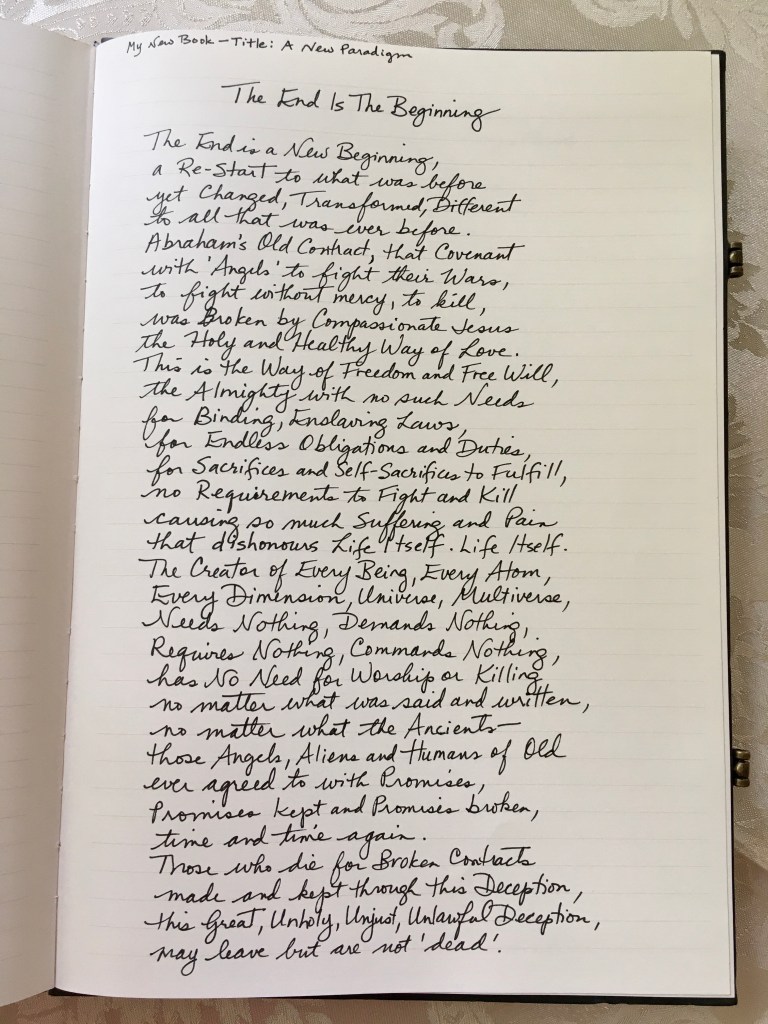 My New Book – Title: A New Paradigm
The End Is The Beginning
The End is a New Beginning,
a Re-Start to what was before
yet Changed, Transformed, Different
to all that was ever before.
Abraham's Old Contract, that Covenant
with 'Angels' to fight their Wars,
to fight without mercy, to kill,
was Broken by Compassionate Jesus
the Holy and Healthy Way of Love.
This is the Way of Freedom and Free Will,
the Almighty with no such Needs
for Binding, Enslaving Laws,
for Endless Obligations and Duties,
for Sacrifices and Self-Sacrifices to Fulfill,
no Requirements to Fight and Kill
causing so much Suffering and Pain
that dishonours Life Itself. Life Itself.
The Creator of Every Being, Every Atom,
Every Dimension, Universe, Multiverse,
Needs Nothing, Demands Nothing,
Requires Nothing, Commands Nothing,
has No Need for Worship or Killing
no matter what was said and written,
no matter what the Ancients—
those Angels, Aliens and Humans of Old
ever agreed to with Promises,
Promises kept and Promises broken,
time and time again.
Those who die for Broken Contracts
made and kept through this Deception,
this Great, Unholy, Unjust, Unlawful Deception,
may leave but are not 'dead'.